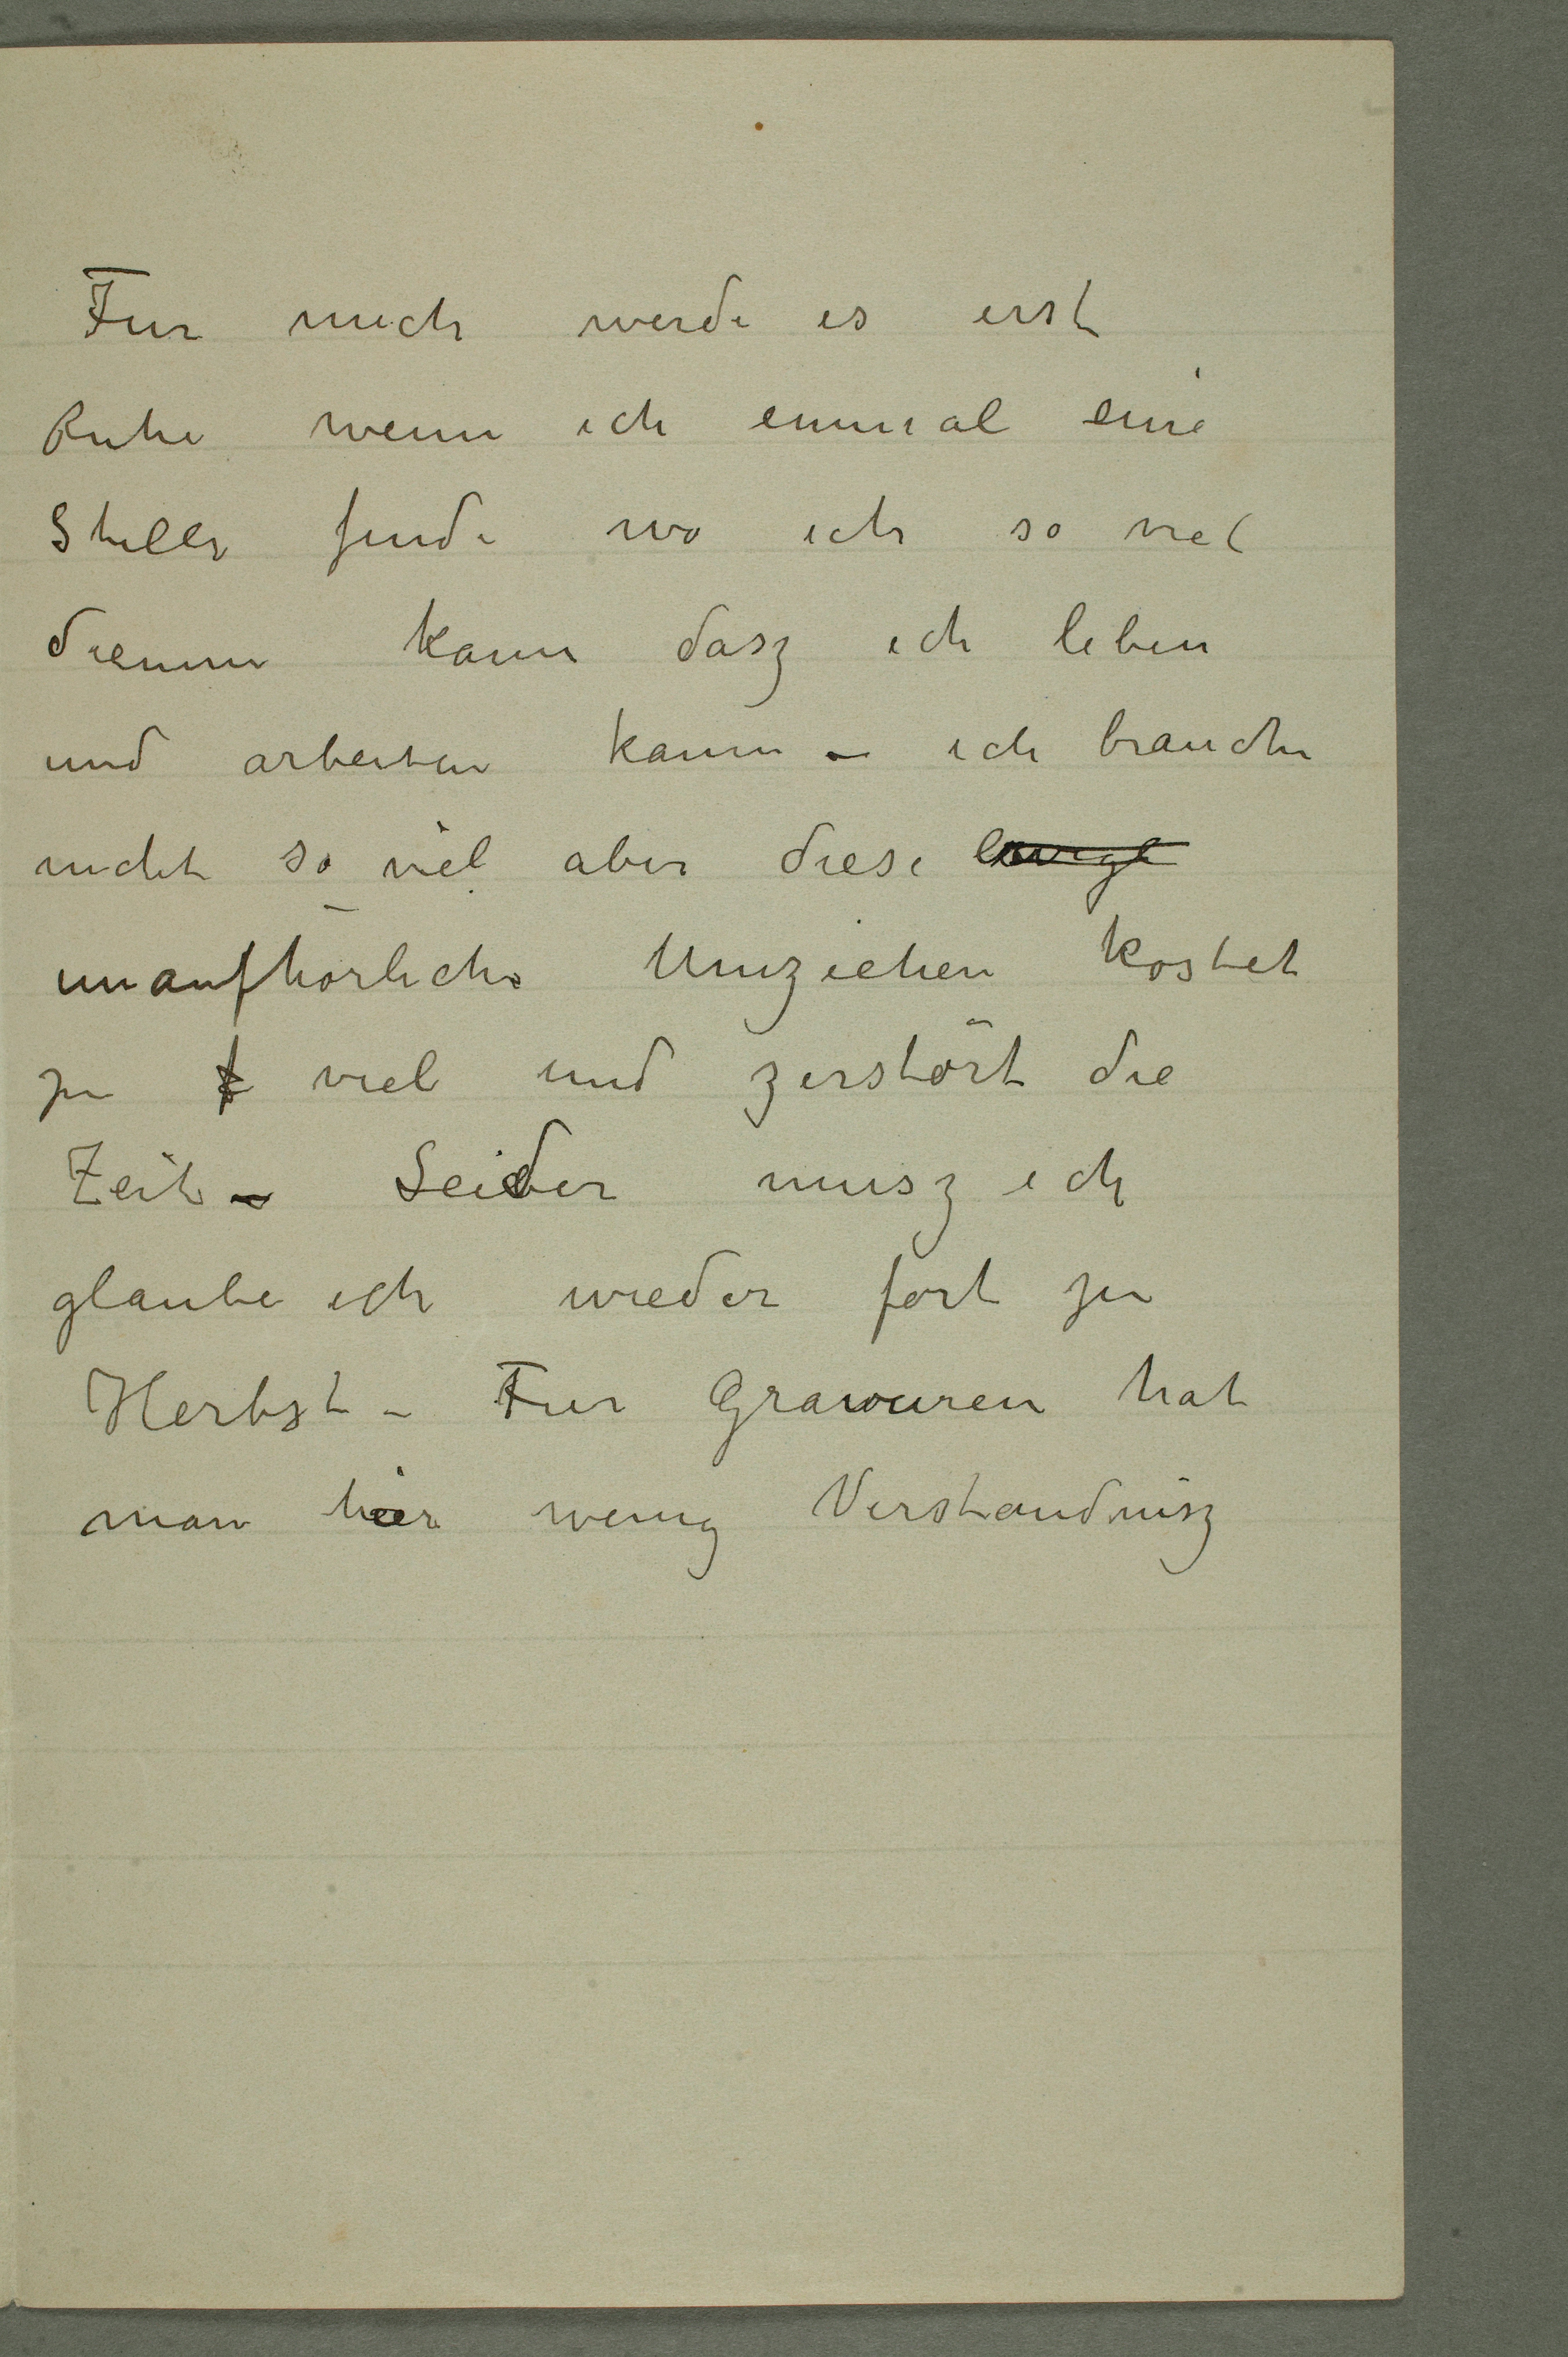 Fur mich werde es erst
Ruhe wenn ich einmal eine
Stelle finde wo ich so viel
dienen kann dasz ich leben
und arbeiten kann – ich brauche
nicht so viel aber diese ewige
unaufhörliche Umziehen kostet
zu viel und zerstört die
Zeit – Leider musz ich
glaube ich wieder fort zu
Herbst – Fur Gravuren hat
man hier wenig Verstandnisz